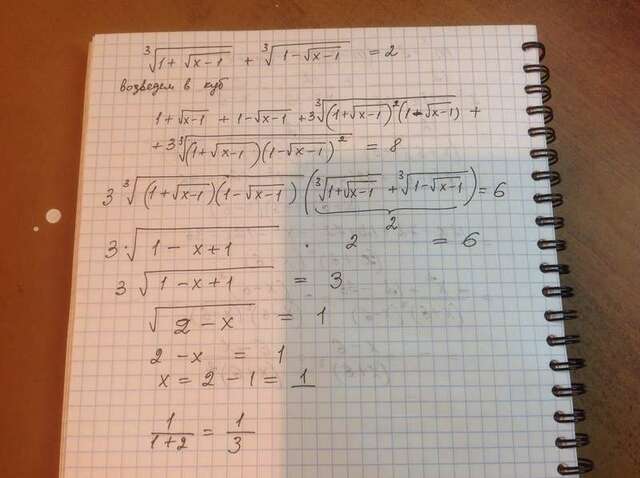 ∛(1+√(x-1)) + ∛(1-√(x-1)) = 2
возведем в куб
1+√(x-1) + 1-√(x-1) + 3∛((1+√(x-1))²(1-√(x-1))) +
+ 3∛((1+√(x-1))(1-√(x-1))²) = 8
3∛((1+√(x-1))(1-√(x-1))) (∛(1+√(x-1)) + ∛(1-√(x-1))) = 6
2
3·√(1-x+1) · 2 = 6
3√(1-x+1) = 3
√(2-x) = 1
2-x = 1
x = 2-1 = 1
1/(1+2) = 1/3